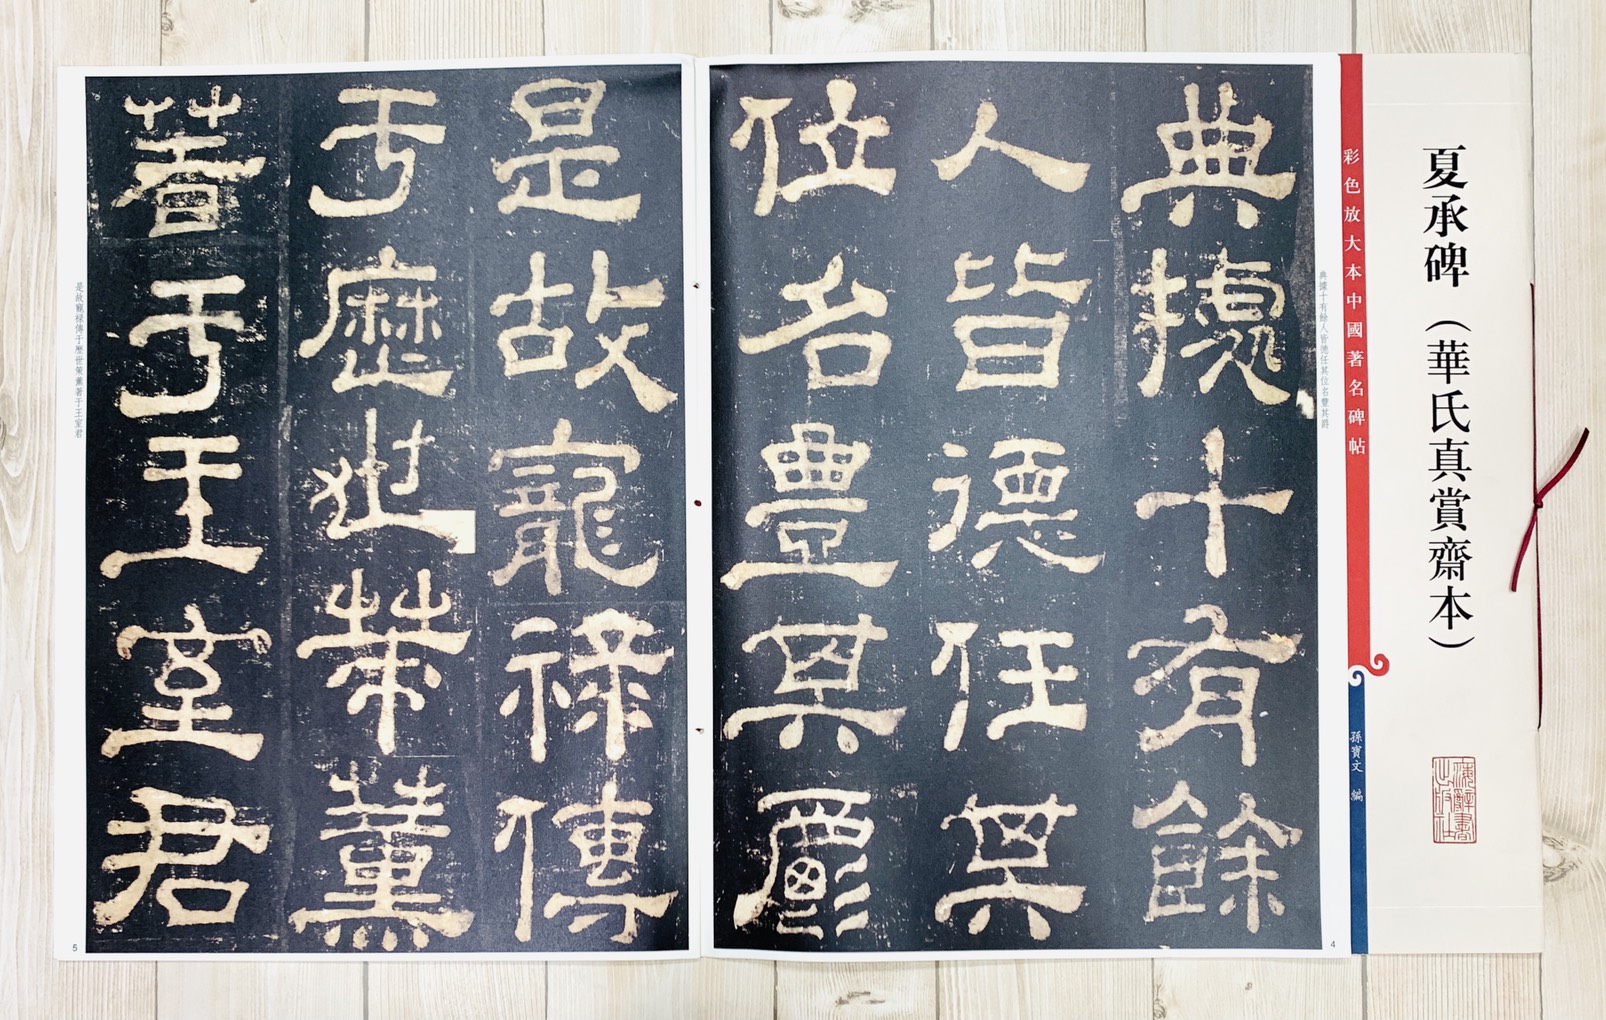 夏承碑（華氏真賞齋本）
彩色放大本中國著名碑帖
孫寶文 編
典據十有餘人皆德任其位名豐其爵
典據十有餘
人皆德任其
位名豐其爵
4
是故寵祿傳
于歷世策薰
著于王室君
是故寵禄傳于歷世策薰著于王室君
5